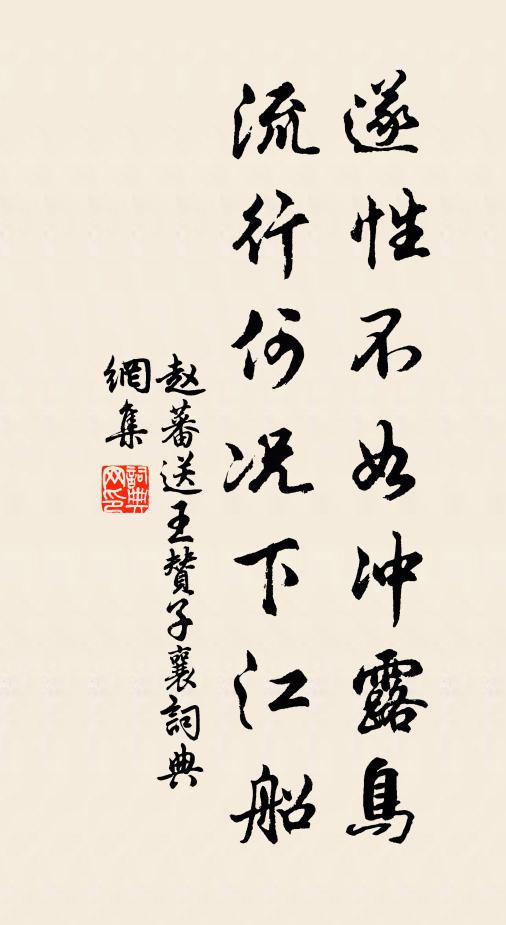 遂性不如冲露鳥
流行何况下江船
赵蕃送王贊子襄詞典
網集
詞典网印